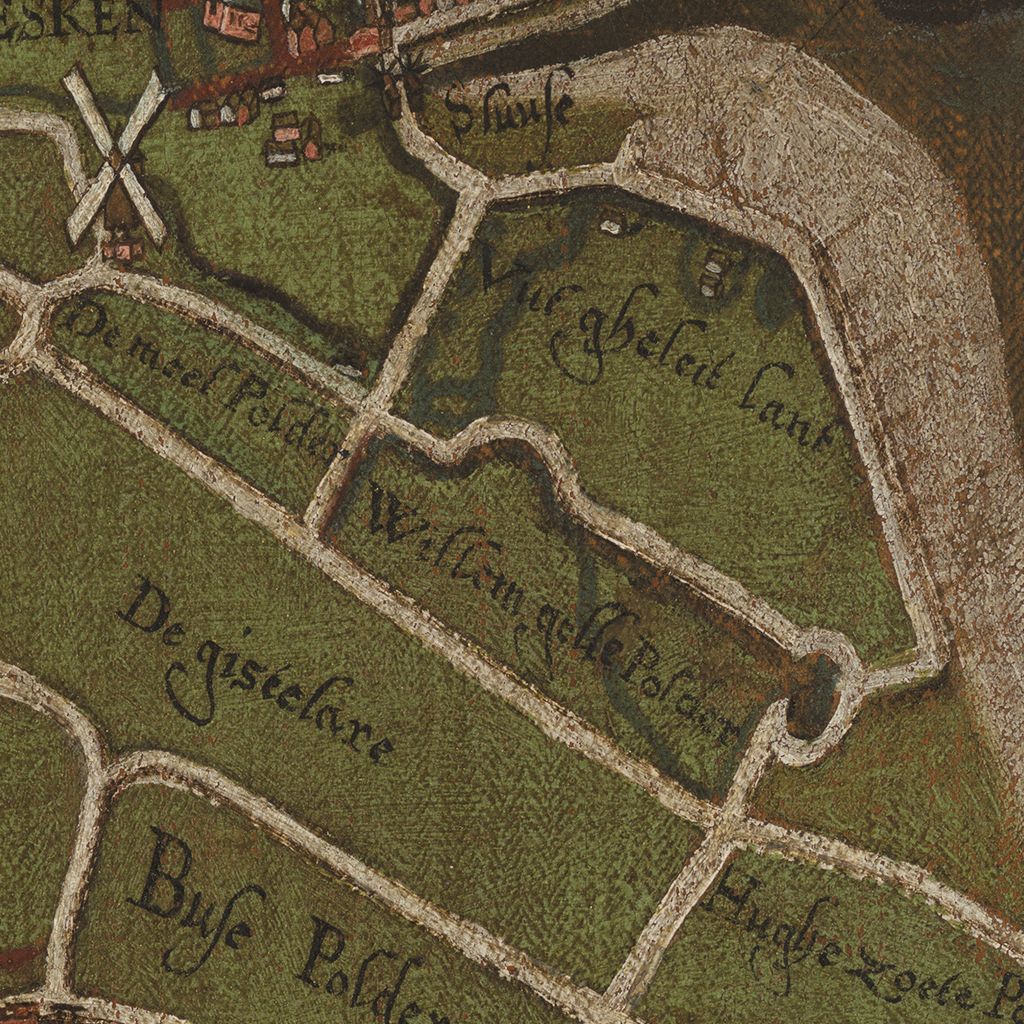 ESKEN
Sluuse
Vut gheleit lant
De meel Polder
Willem gelle Polder
De giselare
Buse Polder
Hughe zoete Po